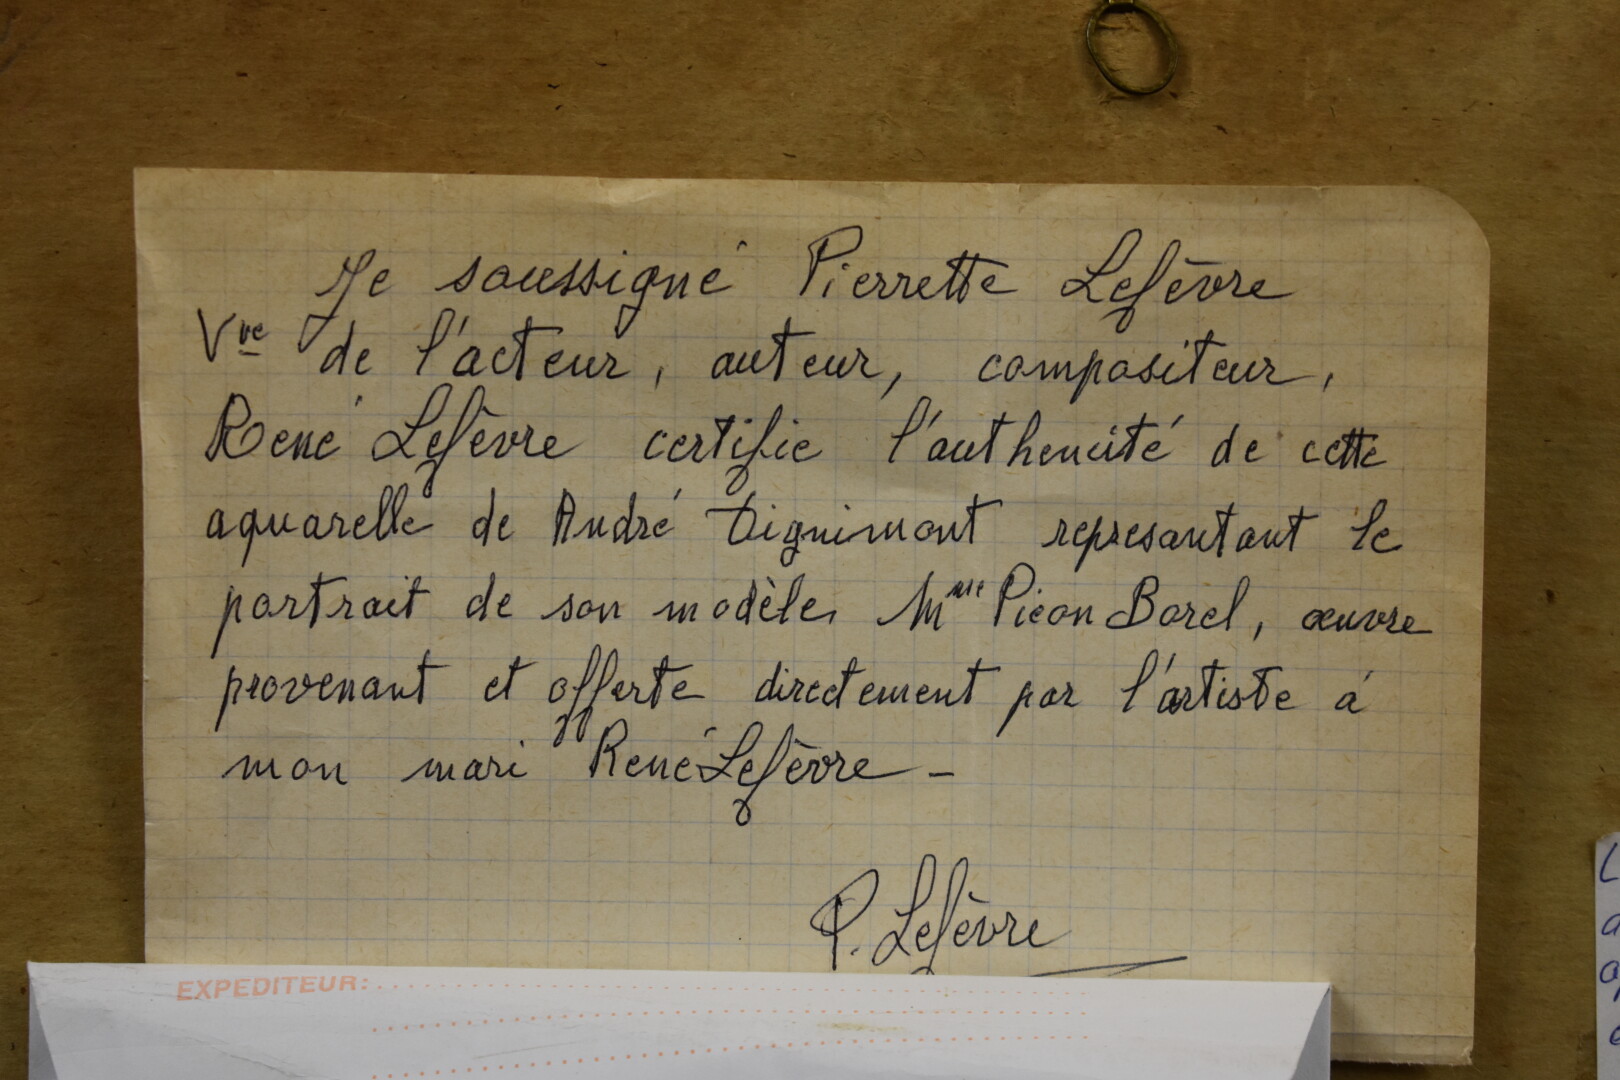 Je soussigné Pierrette Lefèvre
Vve de l'acteur, auteur, compositeur,
René Lefèvre certifie l'authencité de cette
aquarelle de André Dignimont represantant le
portrait de son modèle, Mme Picon Borel, œuvre
provenant et offerte directement par l'artiste à
mon mari René Lefèvre -
P. Lefèvre
EXPEDITEUR: